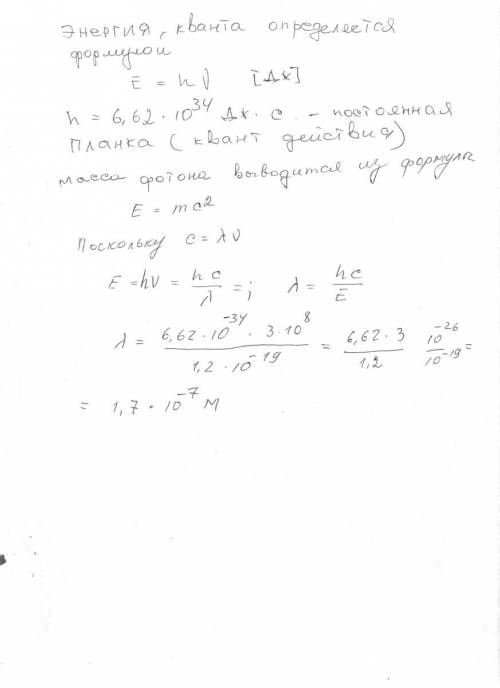 энергия, кванта определяется
формулои
E = hν [Дж]
h = 6,62 · 10³⁴ Дж · с. – постоянная
Планка (квант действия)
масса фотона выводится из формулы
E = mc²
Поскольку c = λν
E = hν = hc/λ = ; λ = hc/E
λ = 6,62 · 10⁻³⁴ · 3 · 10⁸ / 1,2 · 10⁻¹⁹ = 6,62 · 3 / 1,2 10⁻²⁶ / 10⁻¹⁹ =
= 1,7 · 10⁻⁷ м